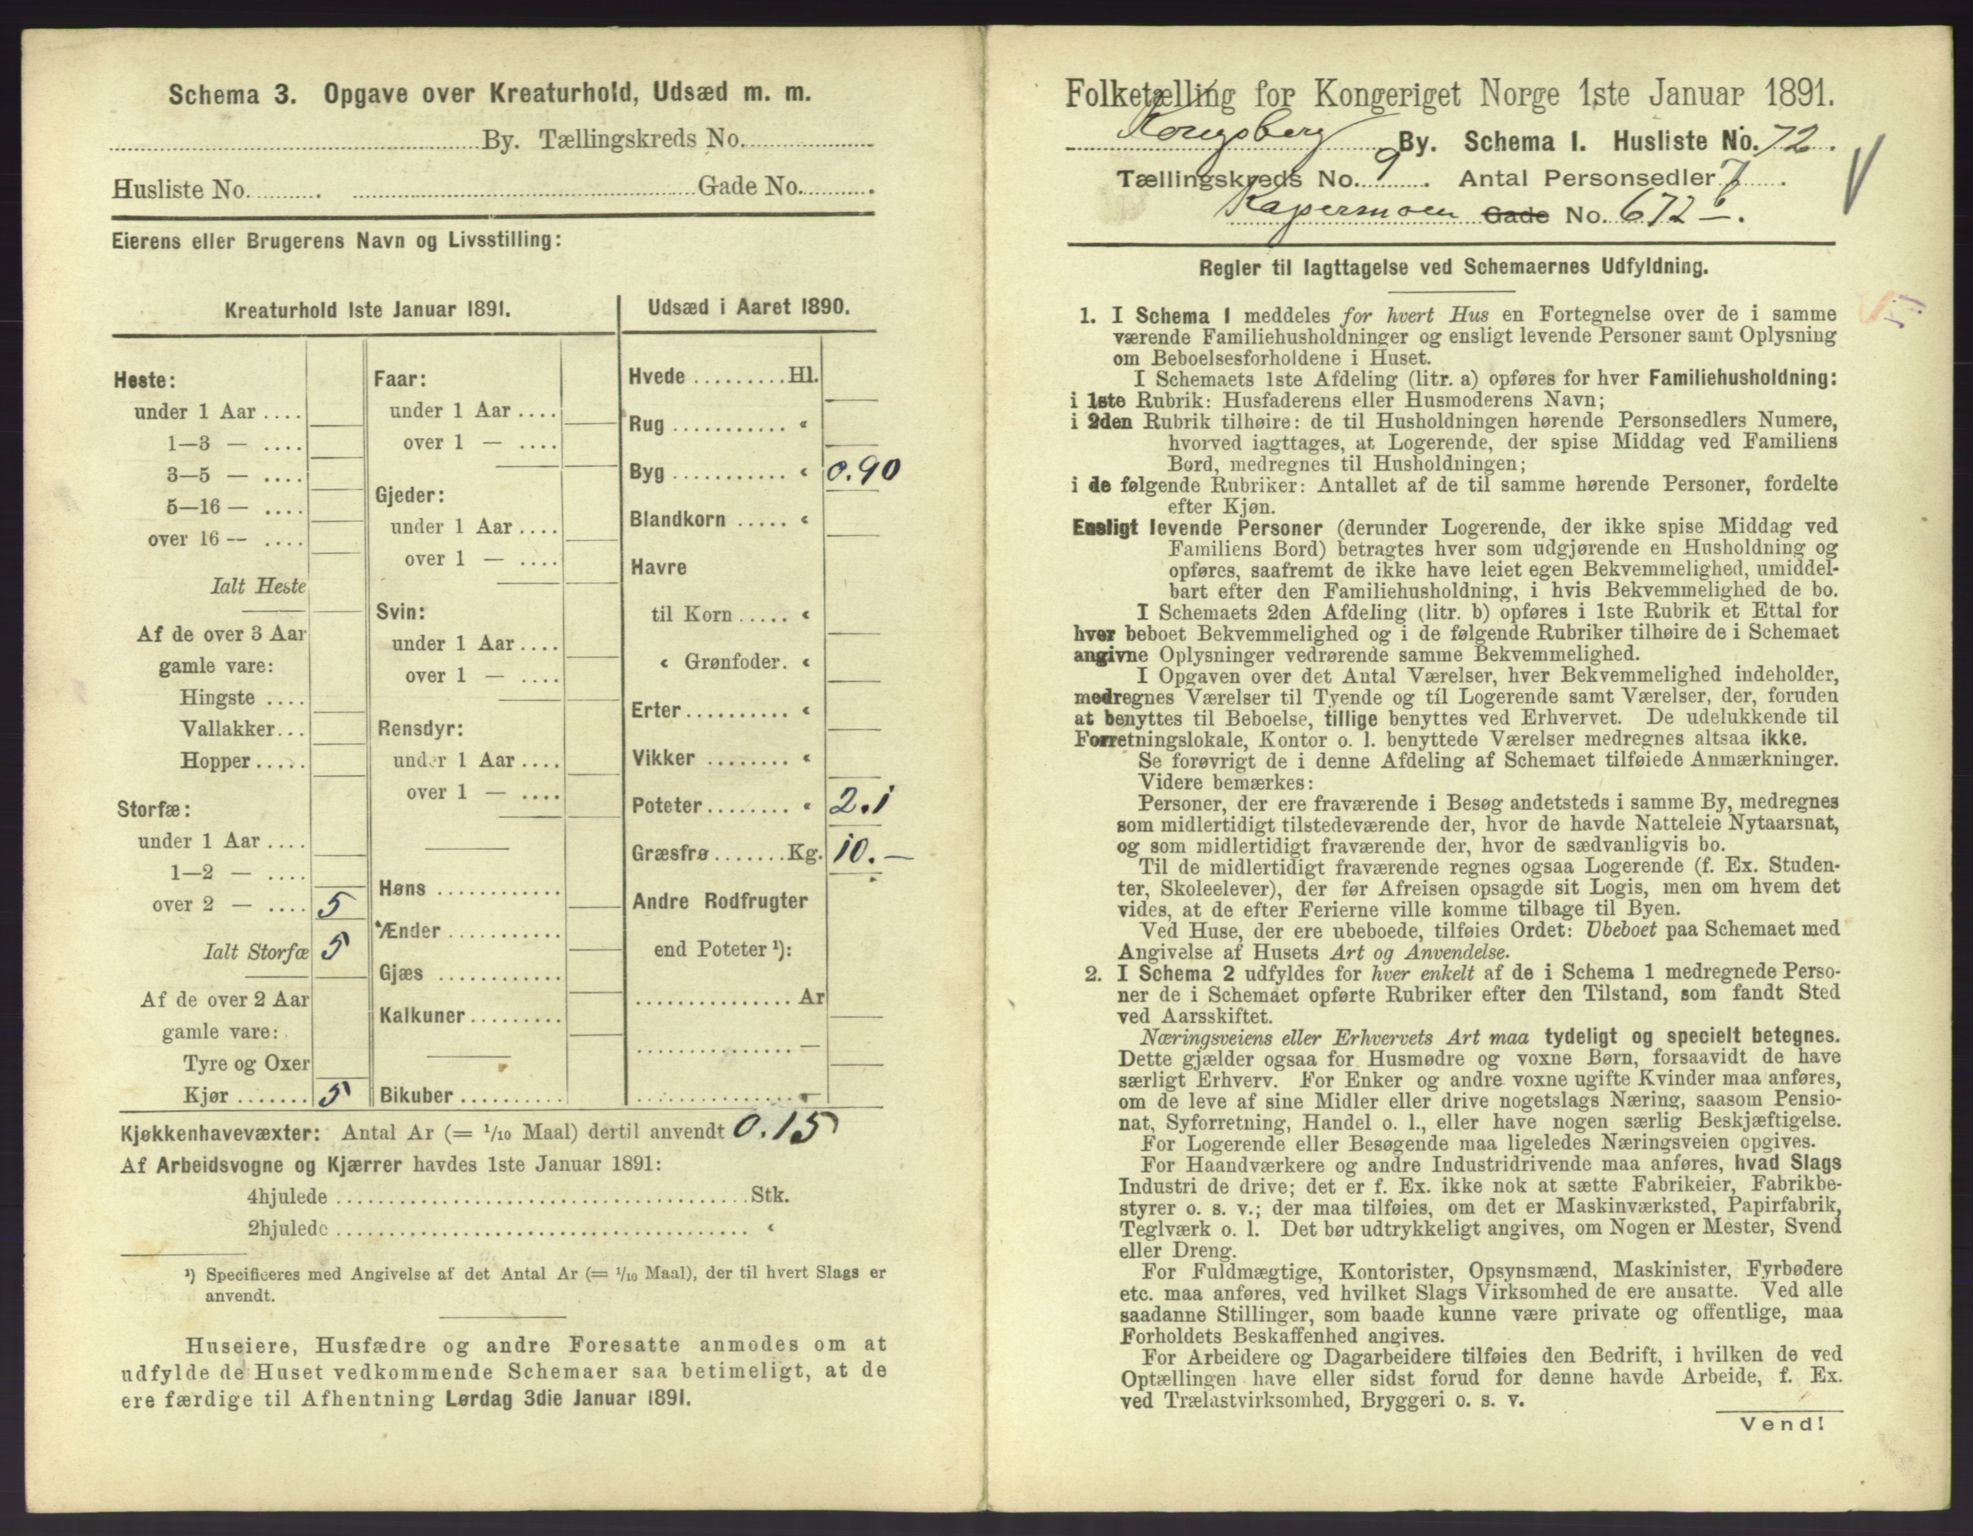 Schema 3. Opgave over Kreaturhold, Udsæd m. m.
By. Tællingskreds No.
Husliste No. Gade No.
Eierens eller Brugerens Navn og Livsstilling:
Kreaturhold 1ste Januar 1891.
Heste:
under 1 Aar ....
1—3 — ....
3—5 — ....
5—16 — ....
over 16 — ....
Ialt Heste
Af de over 3 Aar
gamle vare:
Hingste ....
Vallakker...
Hopper.....
Storfæ:
under 1 Aar ....
1—2 — ....
over 2 — .... 5
Ialt Storfæ 5
Af de over 2 Aar
gamle vare:
Tyre og Oxer
Kjør ....... 5
Faar:
under 1 Aar ....
over 1 — ....
Gjeder:
under 1 Aar ....
over 1 — ....
Svin:
under 1 Aar ....
over 1 — ....
Rensdyr:
under 1 Aar ....
over 1 — ....
Høns ...........
Ænder ...........
Gjæs ...........
Kalkuner.........
Bikuber ..........
Udsæd i Aaret 1890.
Hvede .........Hl.
Rug ........... «
Byg ........... « 0.90
Blandkorn ..... «
Havre
til Korn ..... «
« Grønfoder. «
Erter.......... «
Vikker ........ «
Poteter........ « 2.1
Græsfrø.......Kg. 10.—
Andre Rodfrugter
end Poteter ¹):
............... Ar
............... —
............... —
Kjøkkenhavevæxter: Antal Ar (= 1/10 Maal) dertil anvendt 0.15
Af Arbeidsvogne og Kjærrer havdes 1ste Januar 1891:
4hjulede ..................................... Stk.
2hjulede ..................................... «
¹) Specificeres med Angivelse af det Antal Ar (= 1/10 Maal), der til hvert Slags er
anvendt.
Huseiere, Husfædre og andre Foresatte anmodes om at
udfylde de Huset vedkommende Schemaer saa betimeligt, at de
ere færdige til Afhentning Lørdag 3die Januar 1891.
Folketælling for Kongeriget Norge 1ste Januar 1891.
Kongsberg By. Schema I. Husliste No. 72.
Tællingskreds No. 9. Antal Personsedler 7.
Kapermoen Gade No. 672 b.
Regler til Iagttagelse ved Schemaernes Udfyldning.
1. I Schema 1 meddeles for hvert Hus en Fortegnelse over de i samme
værende Familiehusholdninger og ensligt levende Personer samt Oplysning
om Beboelsesforholdene i Huset.
I Schemaets 1ste Afdeling (litr. a) opføres for hver Familiehusholdning:
i 1ste Rubrik: Husfaderens eller Husmoderens Navn;
i 2den Rubrik tilhøire: de til Husholdningen hørende Personsedlers Numere,
hvorved iagttages, at Logerende, der spise Middag ved Familiens
Bord, medregnes til Husholdningen;
i de følgende Rubriker: Antallet af de til samme hørende Personer, fordelte
efter Kjøn.
Ensligt levende Personer (derunder Logerende, der ikke spise Middag ved
Familiens Bord) betragtes hver som udgjørende en Husholdning og
opføres, saafremt de ikke have leiet egen Bekvemmelighed, umiddel-
bart efter den Familiehusholdning, i hvis Bekvemmelighed de bo.
I Schemaets 2den Afdeling (litr. b) opføres i 1ste Rubrik et Ettal for
hver beboet Bekvemmelighed og i de følgende Rubriker tilhøire de i Schemaet
angivne Oplysninger vedrørende samme Bekvemmelighed.
I Opgaven over det Antal Værelser, hver Bekvemmelighed indeholder,
medregnes Værelser til Tyende og til Logerende samt Værelser, der, foruden
at benyttes til Beboelse, tillige benyttes ved Erhvervet. De udelukkende til
Forretningslokale, Kontor o. l. benyttede Værelser medregnes altsaa ikke.
Se forøvrigt de i denne Afdeling af Schemaet tilføiede Anmærkninger.
Videre bemærkes:
Personer, der ere fraværende i Besøg andetsteds i samme By, medregnes
som midlertidigt tilstedeværende der, hvor de havde Natteleie Nytaarsnat,
og som midlertidigt fraværende der, hvor de sædvanligvis bo.
Til de midlertidigt fraværende regnes ogsaa Logerende (f. Ex. Studen-
ter, Skoleelever), der før Afreisen opsagde sit Logis, men om hvem det
vides, at de efter Ferierne ville komme tilbage til Byen.
Ved Huse, der ere ubeboede, tilføies Ordet: Ubeboet paa Schemaet med
Angivelse af Husets Art og Anvendelse.
2. I Schema 2 udfyldes for hver enkelt af de i Schema 1 medregnede Perso-
ner de i Schemaet opførte Rubriker efter den Tilstand, som fandt Sted
ved Aarsskiftet.
Næringsveiens eller Erhvervets Art maa tydeligt og specielt betegnes.
Dette gjælder ogsaa for Husmødre og voxne Børn, forsaavidt de have
særligt Erhverv. For Enker og andre voxne ugifte Kvinder maa anføres,
om de leve af sine Midler eller drive nogetslags Næring, saasom Pensio-
nat, Syforretning, Handel o. l., eller have nogen særlig Beskjæftigelse.
For Logerende eller Besøgende maa ligeledes Næringsveien opgives.
For Haandværkere og andre Industridrivende maa anføres, hvad Slags
Industri de drive; det er f. Ex. ikke nok at sætte Fabrikeier, Fabrikbe-
styrer o. s. v.; der maa tilføies, om det er Maskinværksted, Papirfabrik,
Teglværk o. l. Det bør udtrykkeligt angives, om Nogen er Mester, Svend
eller Dreng.
For Fuldmægtige, Kontorister, Opsynsmænd, Maskinister, Fyrbødere
etc. maa anføres, ved hvilket Slags Virksomhed de ere ansatte. Ved alle
saadanne Stillinger, som baade kunne være private og offentlige, maa
Forholdets Beskaffenhed angives.
For Arbeidere og Dagarbeidere tilføies den Bedrift, i hvilken de ved
Optællingen have eller sidst forud for denne havde Arbeide, f. Ex.
ved Trælastvirksomhed, Bryggeri o. s. v.
Vend!